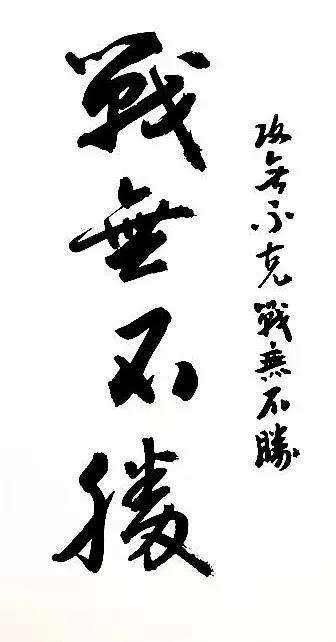 攻無不克戰無不勝
戰無不勝